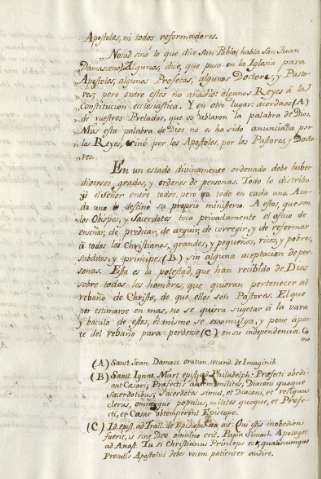 Apostoles, ni todos reformadores.
Notad sinó lo que dice San Pablo, habla San Juan
Damasceno (A) Algunos, dice, que puso en la Iglesia para
Apóstoles, algunos Profetas, algunos Doctores, y Pasto-
res; pero entre ellos no añadió algunos Reyes á la
Constitucion eclesiastica. Y en otro lugar: acordaos (A)
de vuestros Prelados, que os hablaron la palabra de Dios.
Mas esta palabra de Dios no os ha sido anunciada por
los Reyes, sinó por los Apostoles, por los Pastores, y Docto-
res.
En un estado divinamente ordenado debe haber
diversos grados, y ordenes de personas. Todo lo distribu
y el orden entre todos, sera que todo en cada uno. A ca-
da uno se destinó su propio ministerio. A estos, que son
los Obispos, y Sacerdotes toca privadamente el oficio de
enseñar, de predicar, de argüir, de corregir, y de reformar
á todos los Christianos, grandes, y pequeños, ricos, y pobres,
subditos, y principes (B) sin alguna aceptacion de per-
sonas. Esta es la potestad, que han recibido de Dios
sobre todos los hombres, que quieran pertenecer al
rebaño de Christo, de que ellos son Pastores. El que
por estimarse en mas, no se quiera sujetar á la vara
y baculo de estos, él mismo se excomulga, y pone á par-
te del rebaño para perderse (C) mas independencia. Co
mo
(A) Sanct. Joan. Damasc. oratione secund. de Imaginib.
(B) Sanct. Ignat. Mart. epist. ad Philadelph. Prefecti obedi-
ant Cæsari; Prefectis milites, Diaconi quoque
Sacerdotibus; Sacerdotes simul, et Diaconi, et reliquus
clerus, omnisque populus, milites quoque, et Prefe-
cti, et Cæsar obtemperent Episcopo.
(C) Id. epist. ad Trall. Qui istis inobediens
fuerit, is sine Deo omnino erit. Papa
ad Anast. Tu si Christianus Princeps es, qualiumcumque
Presulis Apostolici debes vocem patienter audire.